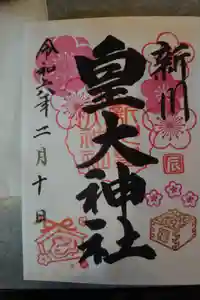 新川
皇大神社
令和六年二月十日
辰